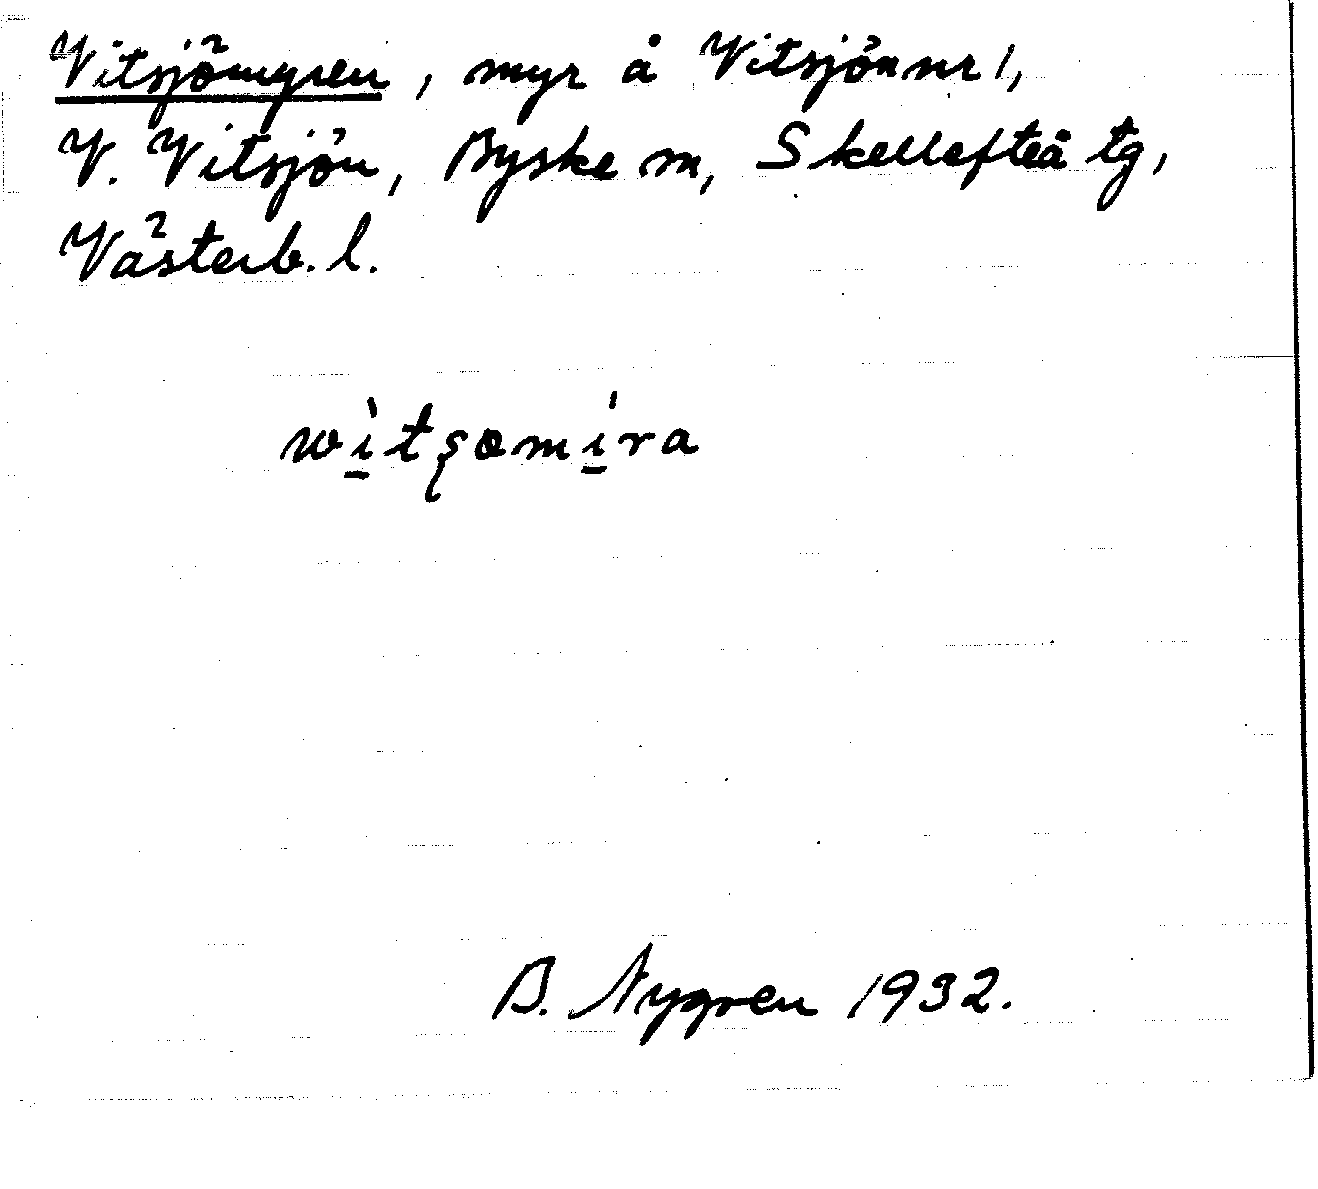 Vitsjömyren, myr å Vitsjön nr 1,
V. Vitsjön, Byske sn, Skellefteå tg,
Västerb. l.
wìtʂomíra
B. Nygren 1932.